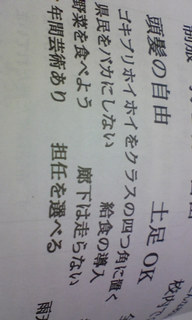 制服
頭髪の自由　土足OK
ゴキブリホイホイをクラスの四つ角に置く
県民をバカにしない　給食の導入
野菜を食べよう　廊下は走らない
年間芸術あり　担任を選べる
雨